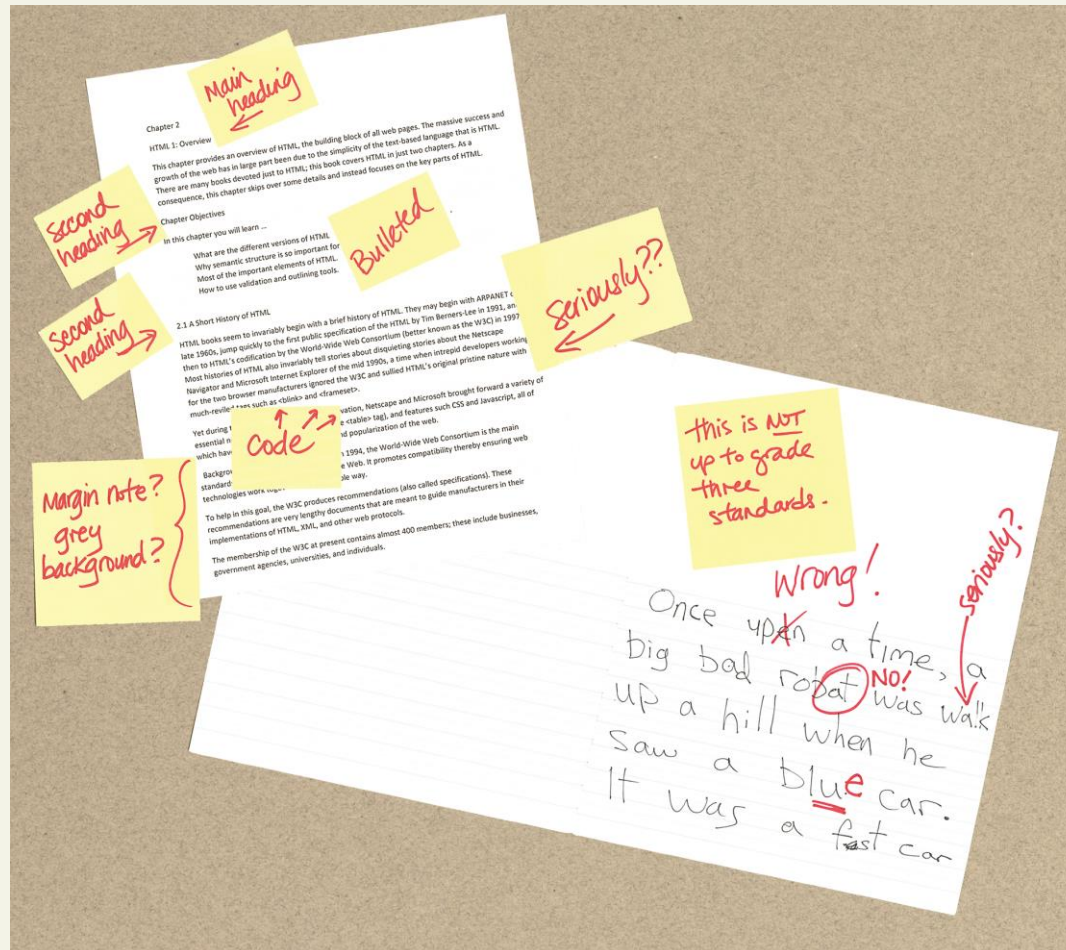 Main
heading
Chapter 2
HTML 1: Overview
This chapter provides an overview of HTML, the building block of all web pages. The massive success and
growth of the web has in large part been due to the simplicity of the text-based language that is HTML.
There are many books devoted just to HTML; this book covers HTML in just two chapters. As a
consequence, this chapter skips over some details and instead focuses on the key parts of HTML.
second
heading
Chapter Objectives
In this chapter you will learn ...
What are the different versions of HTML
Why semantic structure is so important for
Most of the important elements of HTML
How to use validation and outlining tools.
Bulleted
second
heading
2.1 A Short History of HTML
HTML books seem to invariably begin with a brief history of HTML. They may begin with ARPANET
late 1960s, jump quickly to the first public specification of the HTML by Tim Berners-Lee in 1991, an
then to HTML's codification by the World-Wide Web Consortium (better known as the W3C) in 1997
Most histories of HTML also invariably tell stories about disquieting stories about the Netscape
Navigator and Microsoft Internet Explorer of the mid 1990s, a time when intrepid developers working
for the two browser manufacturers ignored the W3C and sullied HTML's original pristine nature with
much-reviled tags such as <blink> and <frameset>.
seriously??
Yet during vation, Netscape and Microsoft brought forward a variety of
essential n <table> tag), and features such CSS and Javascript, all of
which hav d popularization of the web.
code
Backgroun 1994, the World-Wide Web Consortium is the main
standard Web. It promotes compatibility thereby ensuring web
technologies work way.
To help in this goal, the W3C produces recommendations (also called specifications). These
recommendations are very lengthy documents that are meant to guide manufacturers in their
implementations of HTML, XML, and other web protocols.
The membership of the W3C at present contains almost 400 members; these include businesses,
government agencies, universities, and individuals.
Margin note?
grey
background?
this is NOT
up to grade
three
standards.
Wrong!
seriously?
Once upen a time, a
big bad robat NO! was walk
up a hill when he
saw a blue car.
It was a fast car